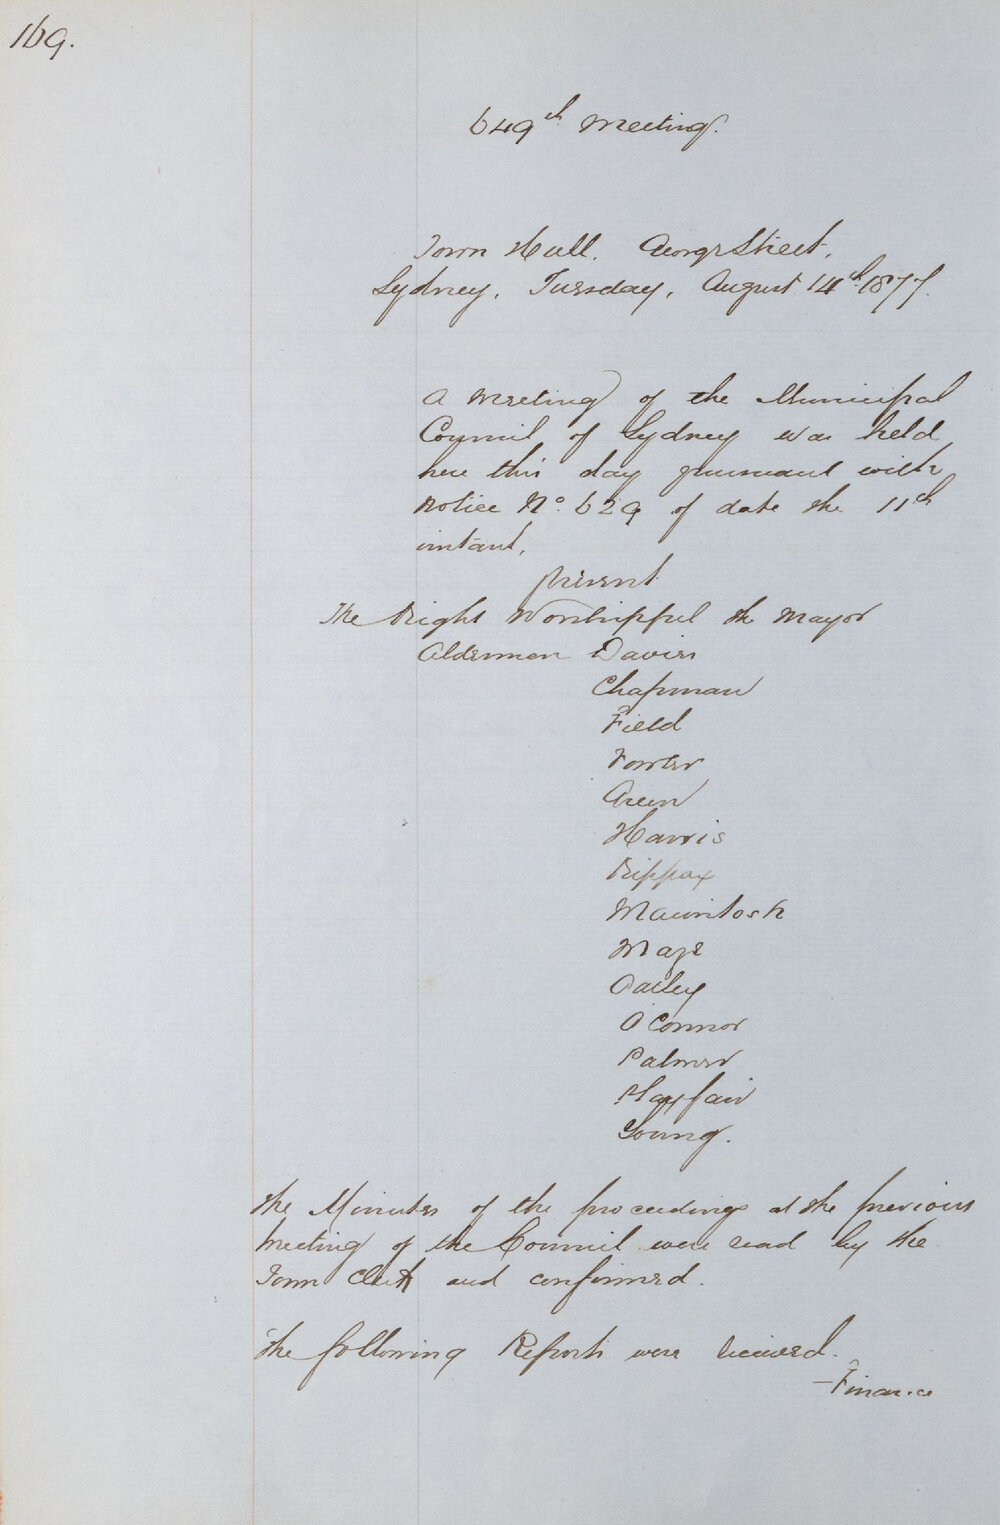 169.
649th Meeting.
Town Hall. George Street.
Sydney, Tuesday, August 14th 1877.
A Meeting of the Municipal
Council of Sydney was held
here this day pursuant with
Notice No. 629 of date the 11th
instant.
Present
The Right Worshipful the Mayor
Aldermen Davies
Chapman
Field
Fowler
Green
Harris
Kippax
Macintosh
Maze
Oatley
O'Connor
Palmer
Playfair
Young.
The Minutes of the proceedings at the previous
Meeting of the Council were read by the
Town Clerk and confirmed.
The following Reports were received.
—Finance